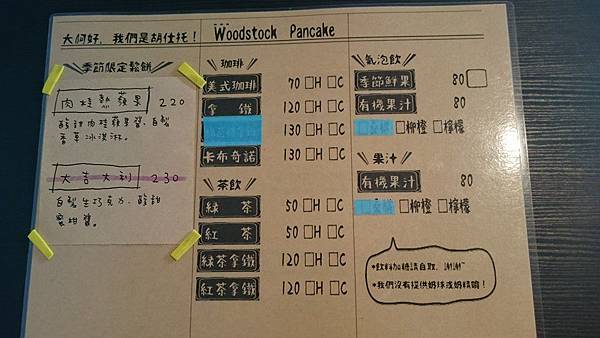 大阿好，我們是胡仕托！
Woodstock Pancake
季節限定鬆餅
肉桂熱蘋果 220
酸甜肉桂蘋果醬、自製
香草冰淇淋。
大吉大利 230
自製生巧克力、酸甜
蜜柑醬。
咖啡
美式咖啡 70 □H □C
拿鐵 120 □H □C
130 □H □C
卡布奇諾 130 □H □C
茶飲
綠茶 50 □H □C
紅茶 50 □H □C
綠茶拿鐵 120 □H □C
紅茶拿鐵 120 □H □C
氣泡飲
季節鮮果 80 □
有機果汁 80
□柳橙 □檸檬
果汁
有機果汁 80
□柳橙 □檸檬
*飲料加糖請自取，謝謝~
*我們沒有提供奶球或奶精唷！